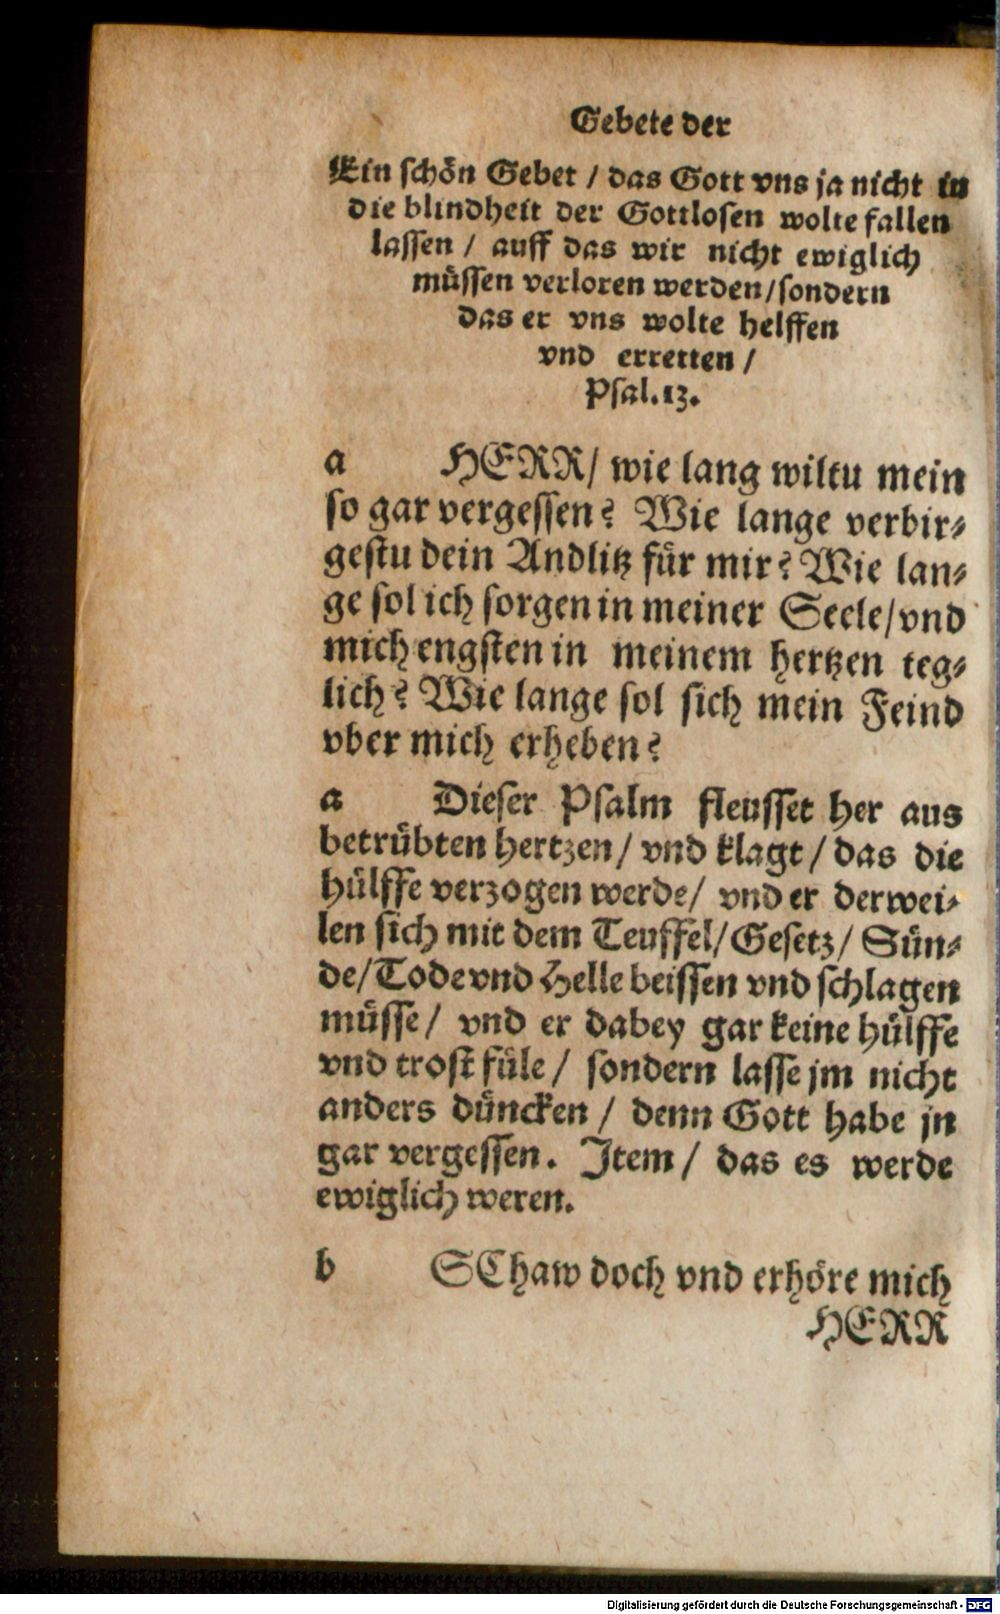 Gebete der
Ein schön Gebet / das Gott vns ja nicht in
die blindheit der Gottlosen wolte fallen
lassen / auff das wir nicht ewiglich
müssen verloren werden/sondern
das er vns wolte helffen
vnd erretten /
Psal.13.
a HERR/ wie lang wiltu mein
so gar vergessen? Wie lange verbir-
gestu dein Andlitz für mir? Wie lan-
ge sol ich sorgen in meiner Seele/vnd
mich engsten in meinem hertzen teg-
lich? Wie lange sol sich mein Feind
vber mich erheben?
a Dieser Psalm fleusset her aus
betrübten hertzen/ vnd klagt/ das die
hülffe verzogen werde/ vnd er derwei-
len sich mit dem Teuffel/Gesetz/ Sün-
de/Tode vnd Helle beissen vnd schlagen
müsse/ vnd er dabey gar keine hülffe
vnd trost füle/ sondern lasse jm nicht
anders düncken / denn Gott habe jn
gar vergessen. Item/ das es werde
ewiglich weren.
b SChaw doch vnd erhöre mich
HERR
Digitalisierung gefördert durch die Deutsche Forschungsgemeinschaft - DFG